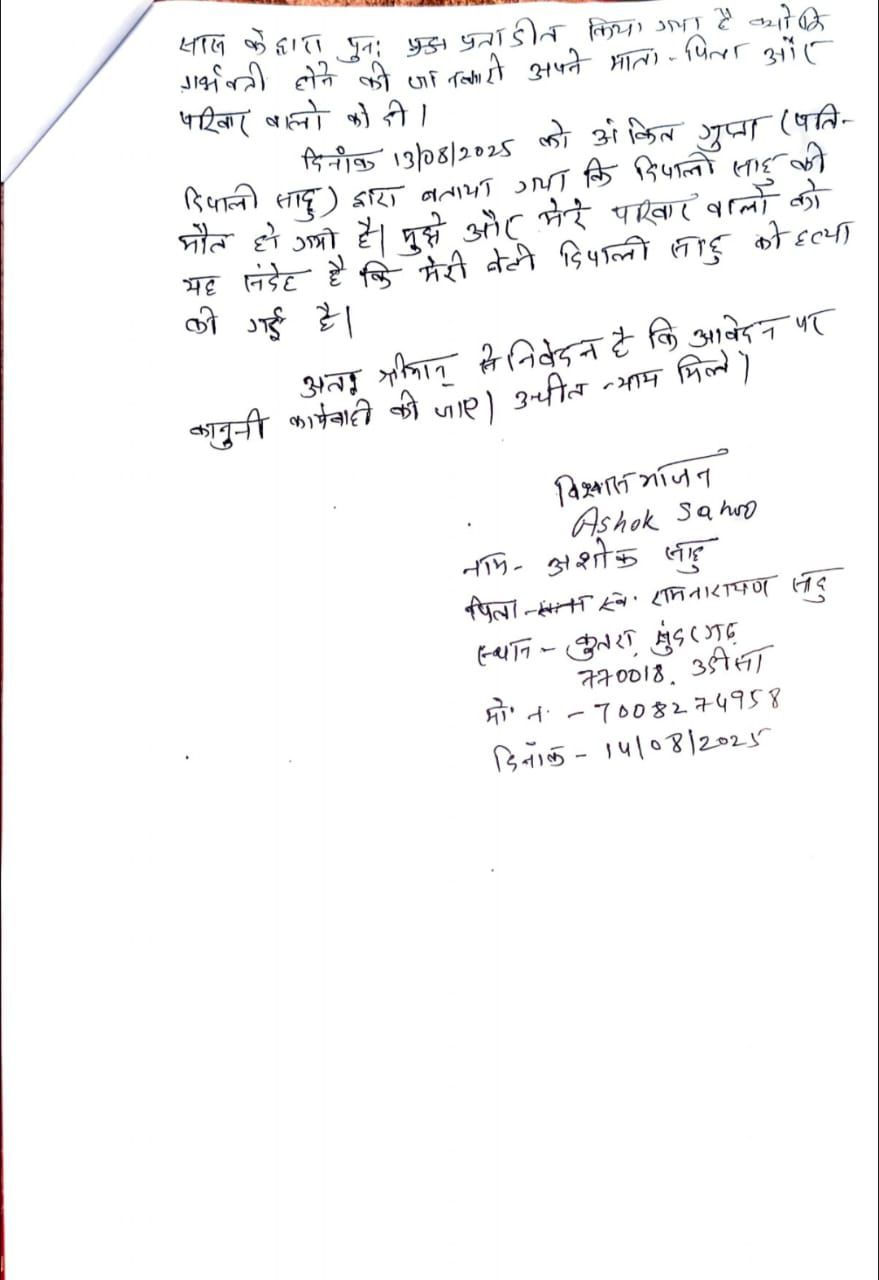 सास के द्वारा पुनः प्रताडीत किया गया है क्योकि
गर्भवती होने की जानकारी अपने माता-पिता और
परिवार वालो को दी।
दिनाँक 13/08/2025 को अंकित गुप्ता (पति-
दिपाली साहु) द्वारा बताया गया कि दिपाली साहु की
मौत हो गयी है। मुझे और मेरे परिवार वालो को
यह संदेह है कि मेरी बेटी दिपाली साहु की हत्या
की गई है।
अतः श्रीमान् से निवेदन है कि आवेदन पर
कानुनी कार्यवाही की जाए। उचीत न्याय मिले।
विश्वासभाजन
Ashok Sahoo
नाम- अशोक साहु
पिता- स्व. रामनारायण साहु
स्थान - कुतरा, सुंदरगढ़,
770018. उडीसा
मो. न. - 7008274958
दिनाँक - 14/08/2025